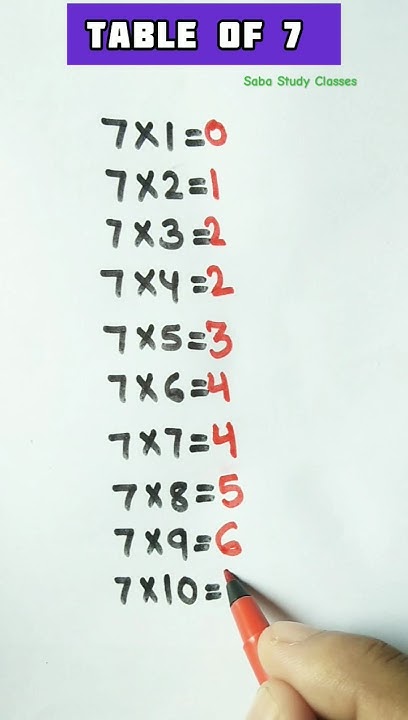 TABLE OF 7
Saba Study Classes
7×1=0
7×2=1
7×3=2
7×4=2
7×5=3
7×6=4
7×7=4
7×8=5
7×9=6
7×10=